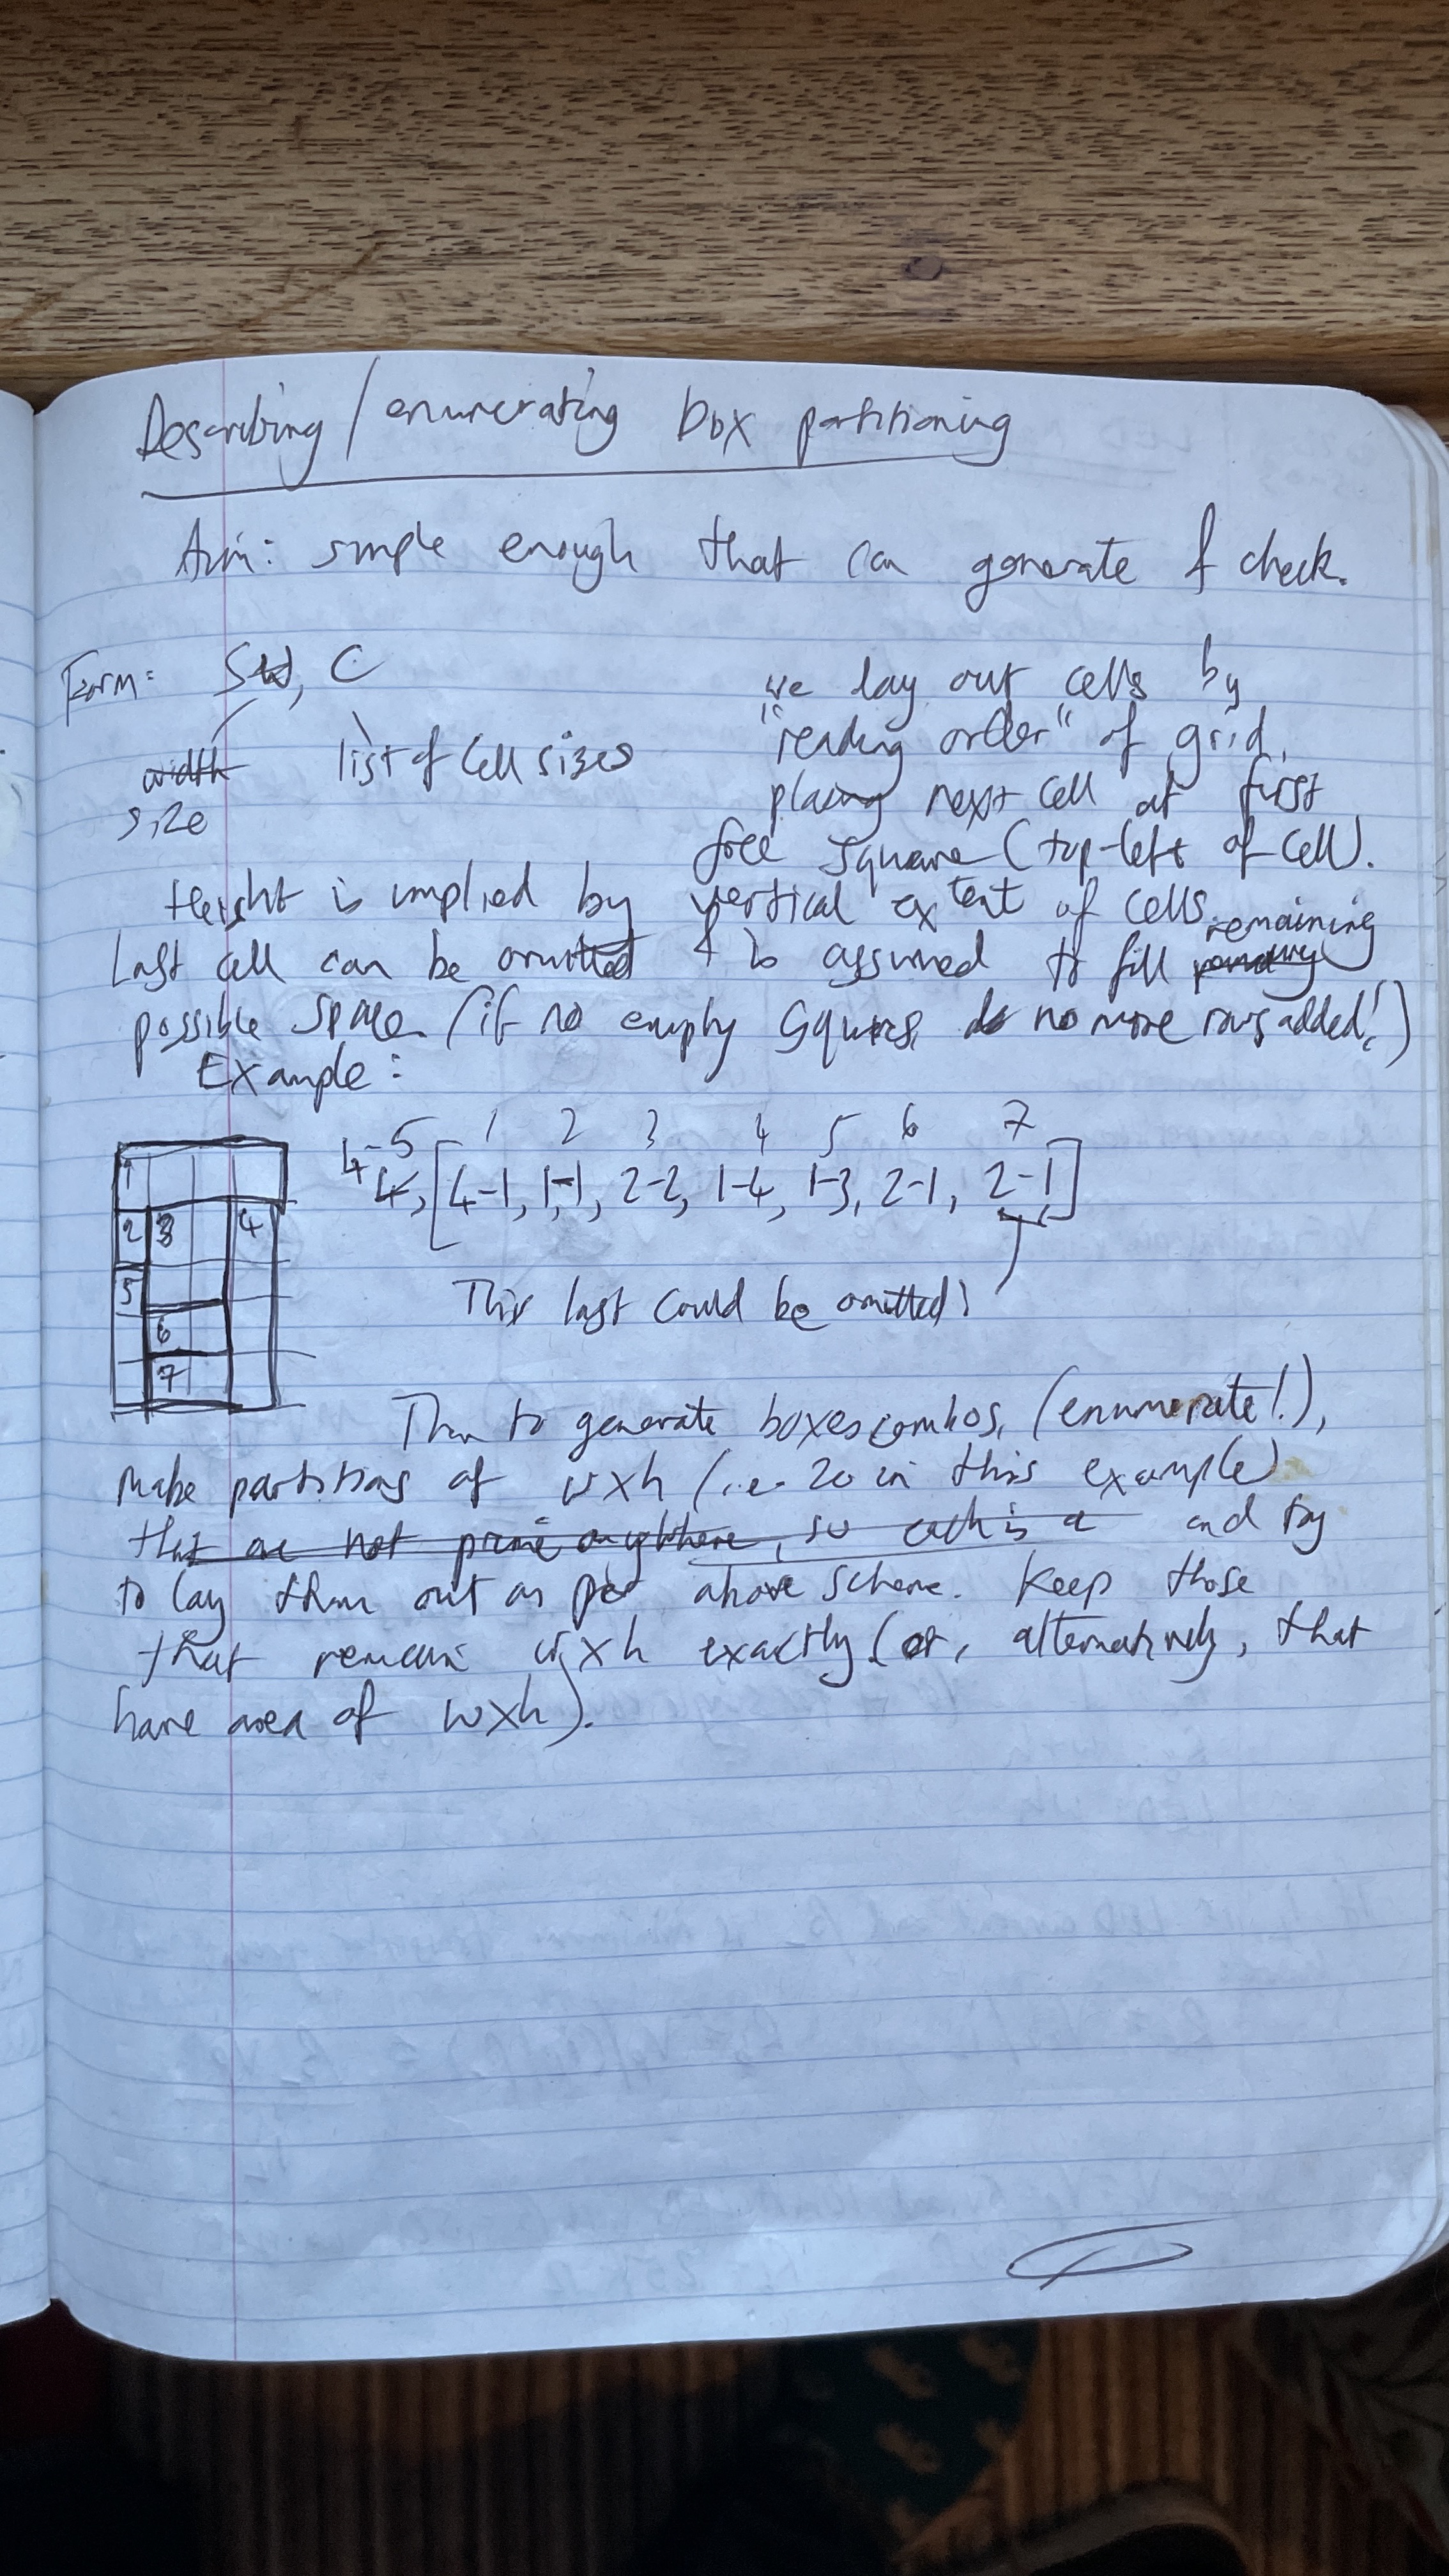 Describing / enumerating box partitioning
Aim: simple enough that can generate & check.
Form: S W, C
width
size
list of cell sizes
we lay out cells by
"reading order" of grid,
placing next cell at first
free square (top-left of cell).
Height is implied by vertical extent of cells.
Last cell can be omitted & is assumed to fill remaining
possible space. (if no empty squares, no more rows added!)
Example:
4-5 1 2 3 4 5 6 7
4, [4-1, 1-1, 2-2, 1-4, 1-3, 2-1, 2-1]
1
2 3 4
5
6
7
This last could be omitted!
Then to generate boxes combos, (enumerate!),
make partitions of w×h (i.e. 20 in this example)
that are not prime anywhere, so each is a and try
to lay them out as per above scheme. Keep those
that remain w×h exactly (or, alternatively, that
have area of w×h).